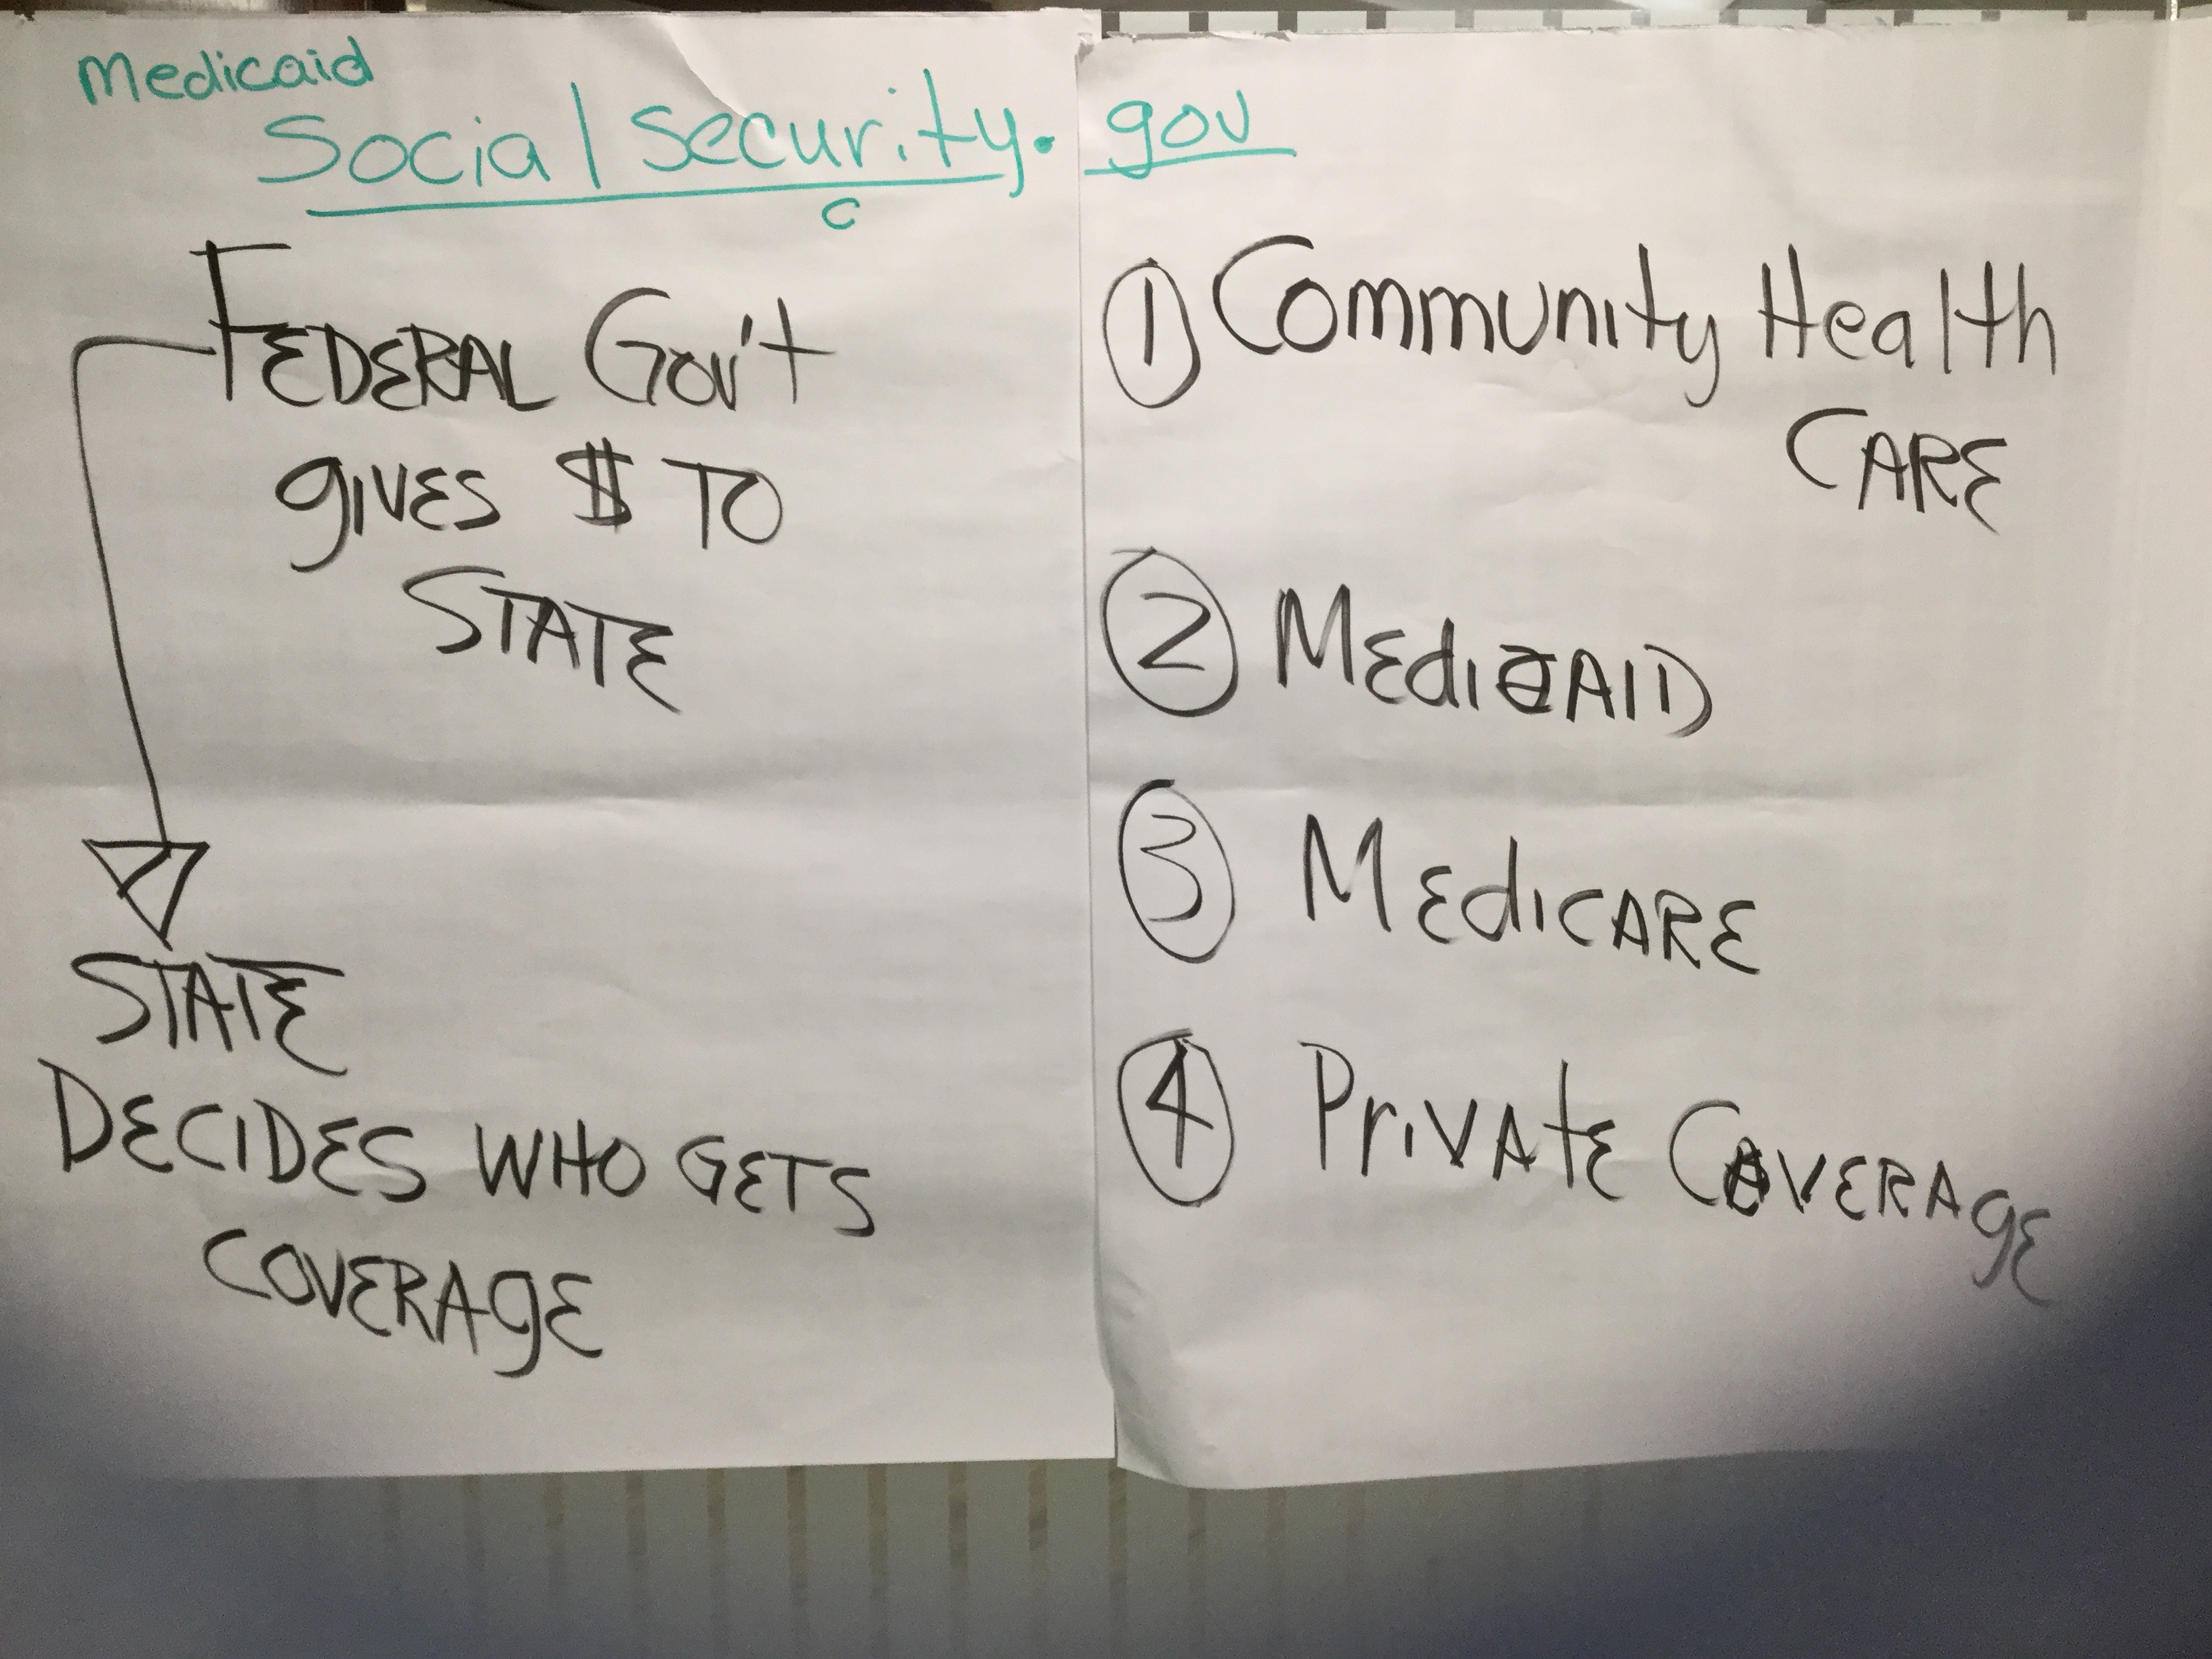 Medicaid
Socialsecurity.gov
c
FEDERAL Gov't
gives $ TO
STATE
STATE
DECIDES WHO GETS
COVERAGE
① Community Health
CARE
② MEDICAID
③ MEDICARE
④ PrIVATE COVERAGE